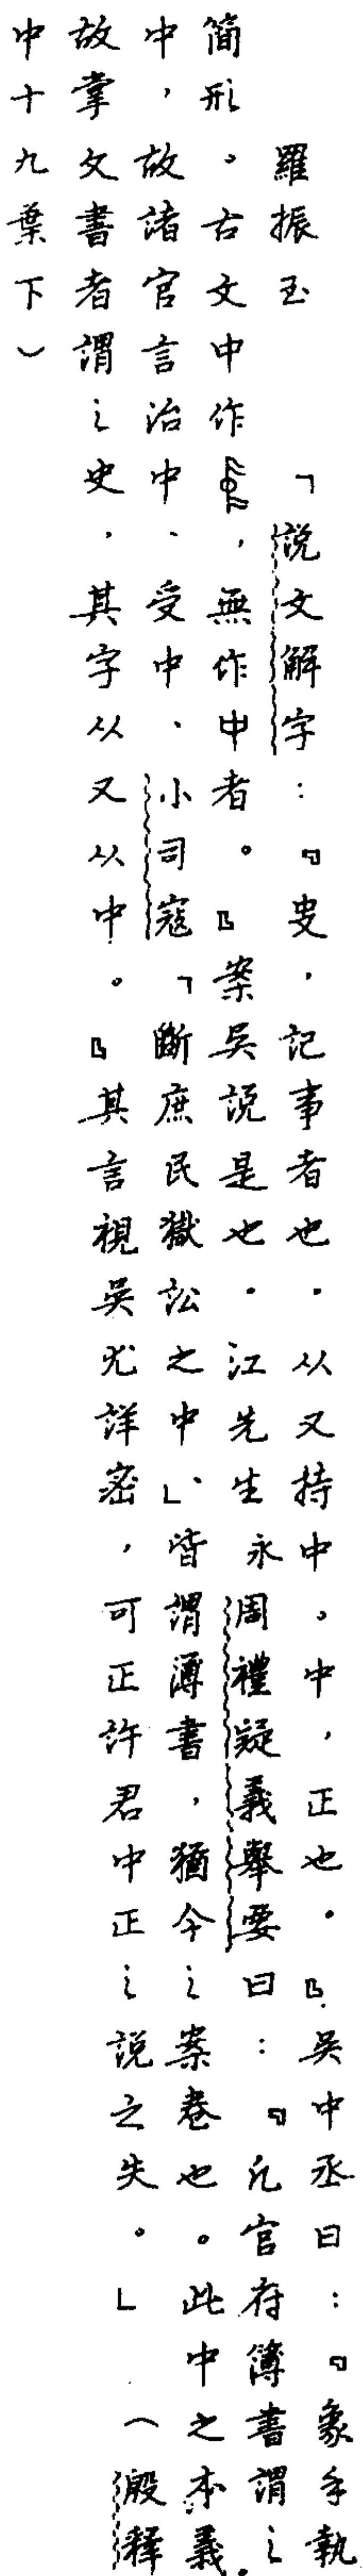 羅振玉　「說文解字：『㕜，記事者也。从又持中。中，正也。』吳中丞曰：『象手執
簡形。古文中作，無作中者。』案吳說是也。江先生永周禮疑義舉要曰：『凡官府簿書謂之
中，故諸官言治中、受中、小司寇「斷庶民獄訟之中」、皆謂簿書，猶今之案卷也。此中之本義。
故掌文書者謂之史，其字从又从中。』其言視吳尤詳密，可正許君中正之說之失。」（殷釋
中十九葉下）